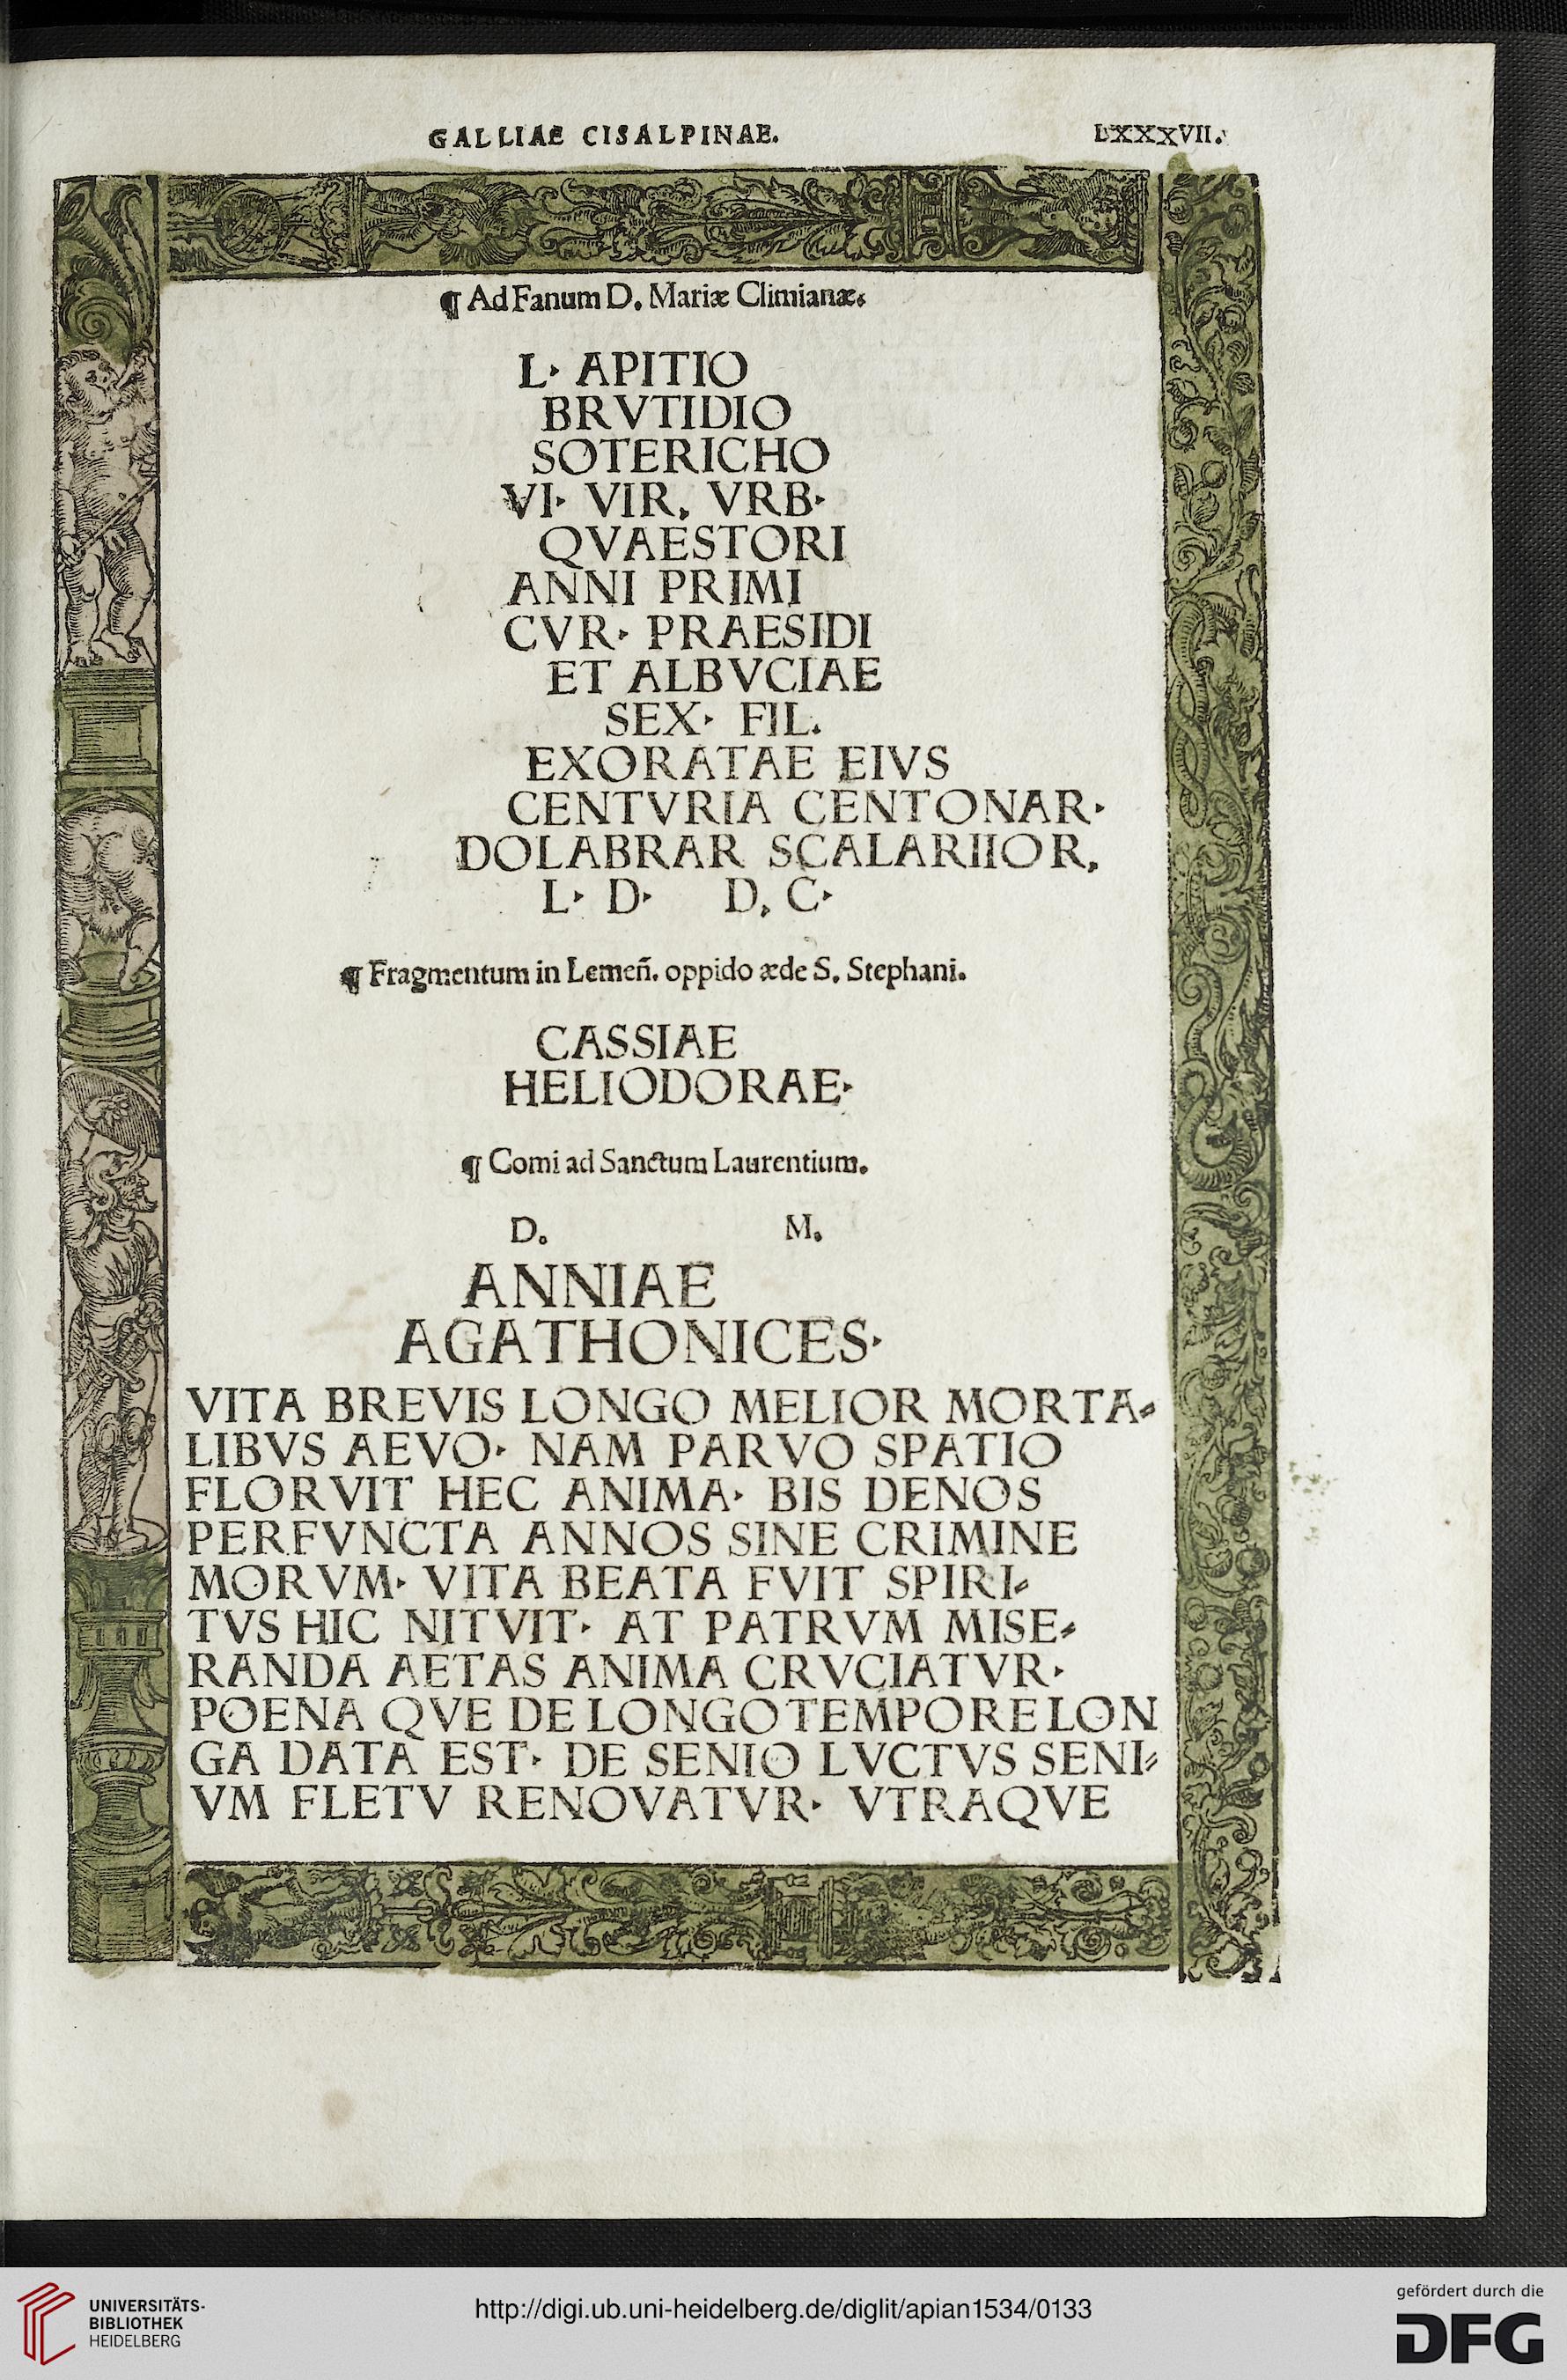 GALLIAE CISALPINAE. LXXXVII.
¶ Ad Fanum D. Mariæ Climianæ.
L· APITIO
BRVTIDIO
SOTERICHO
VI· VIR. VRB·
QVAESTORI
ANNI PRIMI
CVR· PRAESIDI
ET ALBVCIAE
SEX· FIL.
EXORATAE EIVS
CENTVRIA CENTONAR·
DOLABRAR SCALARIIOR.
L· D· D. C·
¶ Fragmentum in Lemeñ. oppido æde S. Stephani.
CASSIAE
HELIODORAE·
¶ Comi ad Sanctum Laurentium.
D. M.
ANNIAE
AGATHONICES·
VITA BREVIS LONGO MELIOR MORTA-
LIBVS AEVO· NAM PARVO SPATIO
FLORVIT HEC ANIMA· BIS DENOS
PERFVNCTA ANNOS SINE CRIMINE
MORVM· VITA BEATA FVIT SPIRI-
TVS HIC NITVIT· AT PATRVM MISE-
RANDA AETAS ANIMA CRVCIATVR·
POENA QVE DE LONGO TEMPORE LON
GA DATA EST· DE SENIO LVCTVS SENI-
VM FLETV RENOVATVR· VTRAQVE
UNIVERSITÄTS-
BIBLIOTHEK
HEIDELBERG
http://digi.ub.uni-heidelberg.de/diglit/apian1534/0133
gefördert durch die
DFG